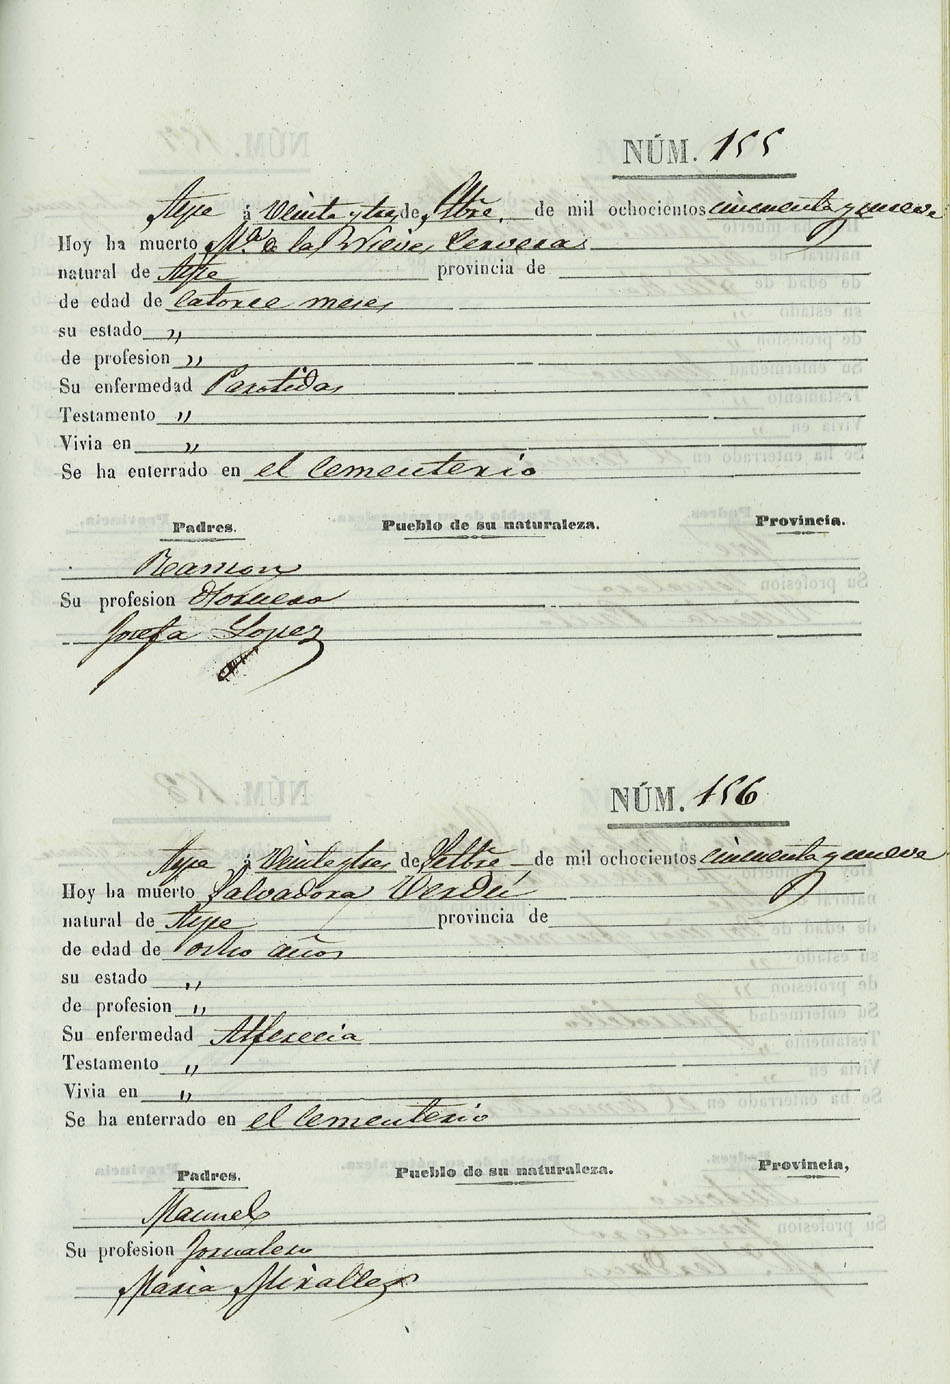 NÚM. 155
Aspe á Veinte y tres de Stbre. de mil ochocientos cincuenta y nueve
Hoy ha muerto Mª. de la Nieves Cerveras
natural de Aspe provincia de
de edad de catorce meses
su estado "
de profesion "
Su enfermedad Parotidas
Testamento "
Vivia en "
Se ha enterrado en el Cementerio
Padres. Pueblo de su naturaleza. Provincia.
Ramon
Su profesion Hornero
Josefa Lopez
NÚM. 156
Aspe á Veinte y tres de Setbre de mil ochocientos cincuenta y nueve
Hoy ha muerto Salvadora Verdú
natural de Aspe provincia de
de edad de ocho años
su estado "
de profesion "
Su enfermedad Alferecia
Testamento "
Vivia en "
Se ha enterrado en el Cementerio
Padres. Pueblo de su naturaleza. Provincia,
Manuel
Su profesion Jornalero
Maria Miralles